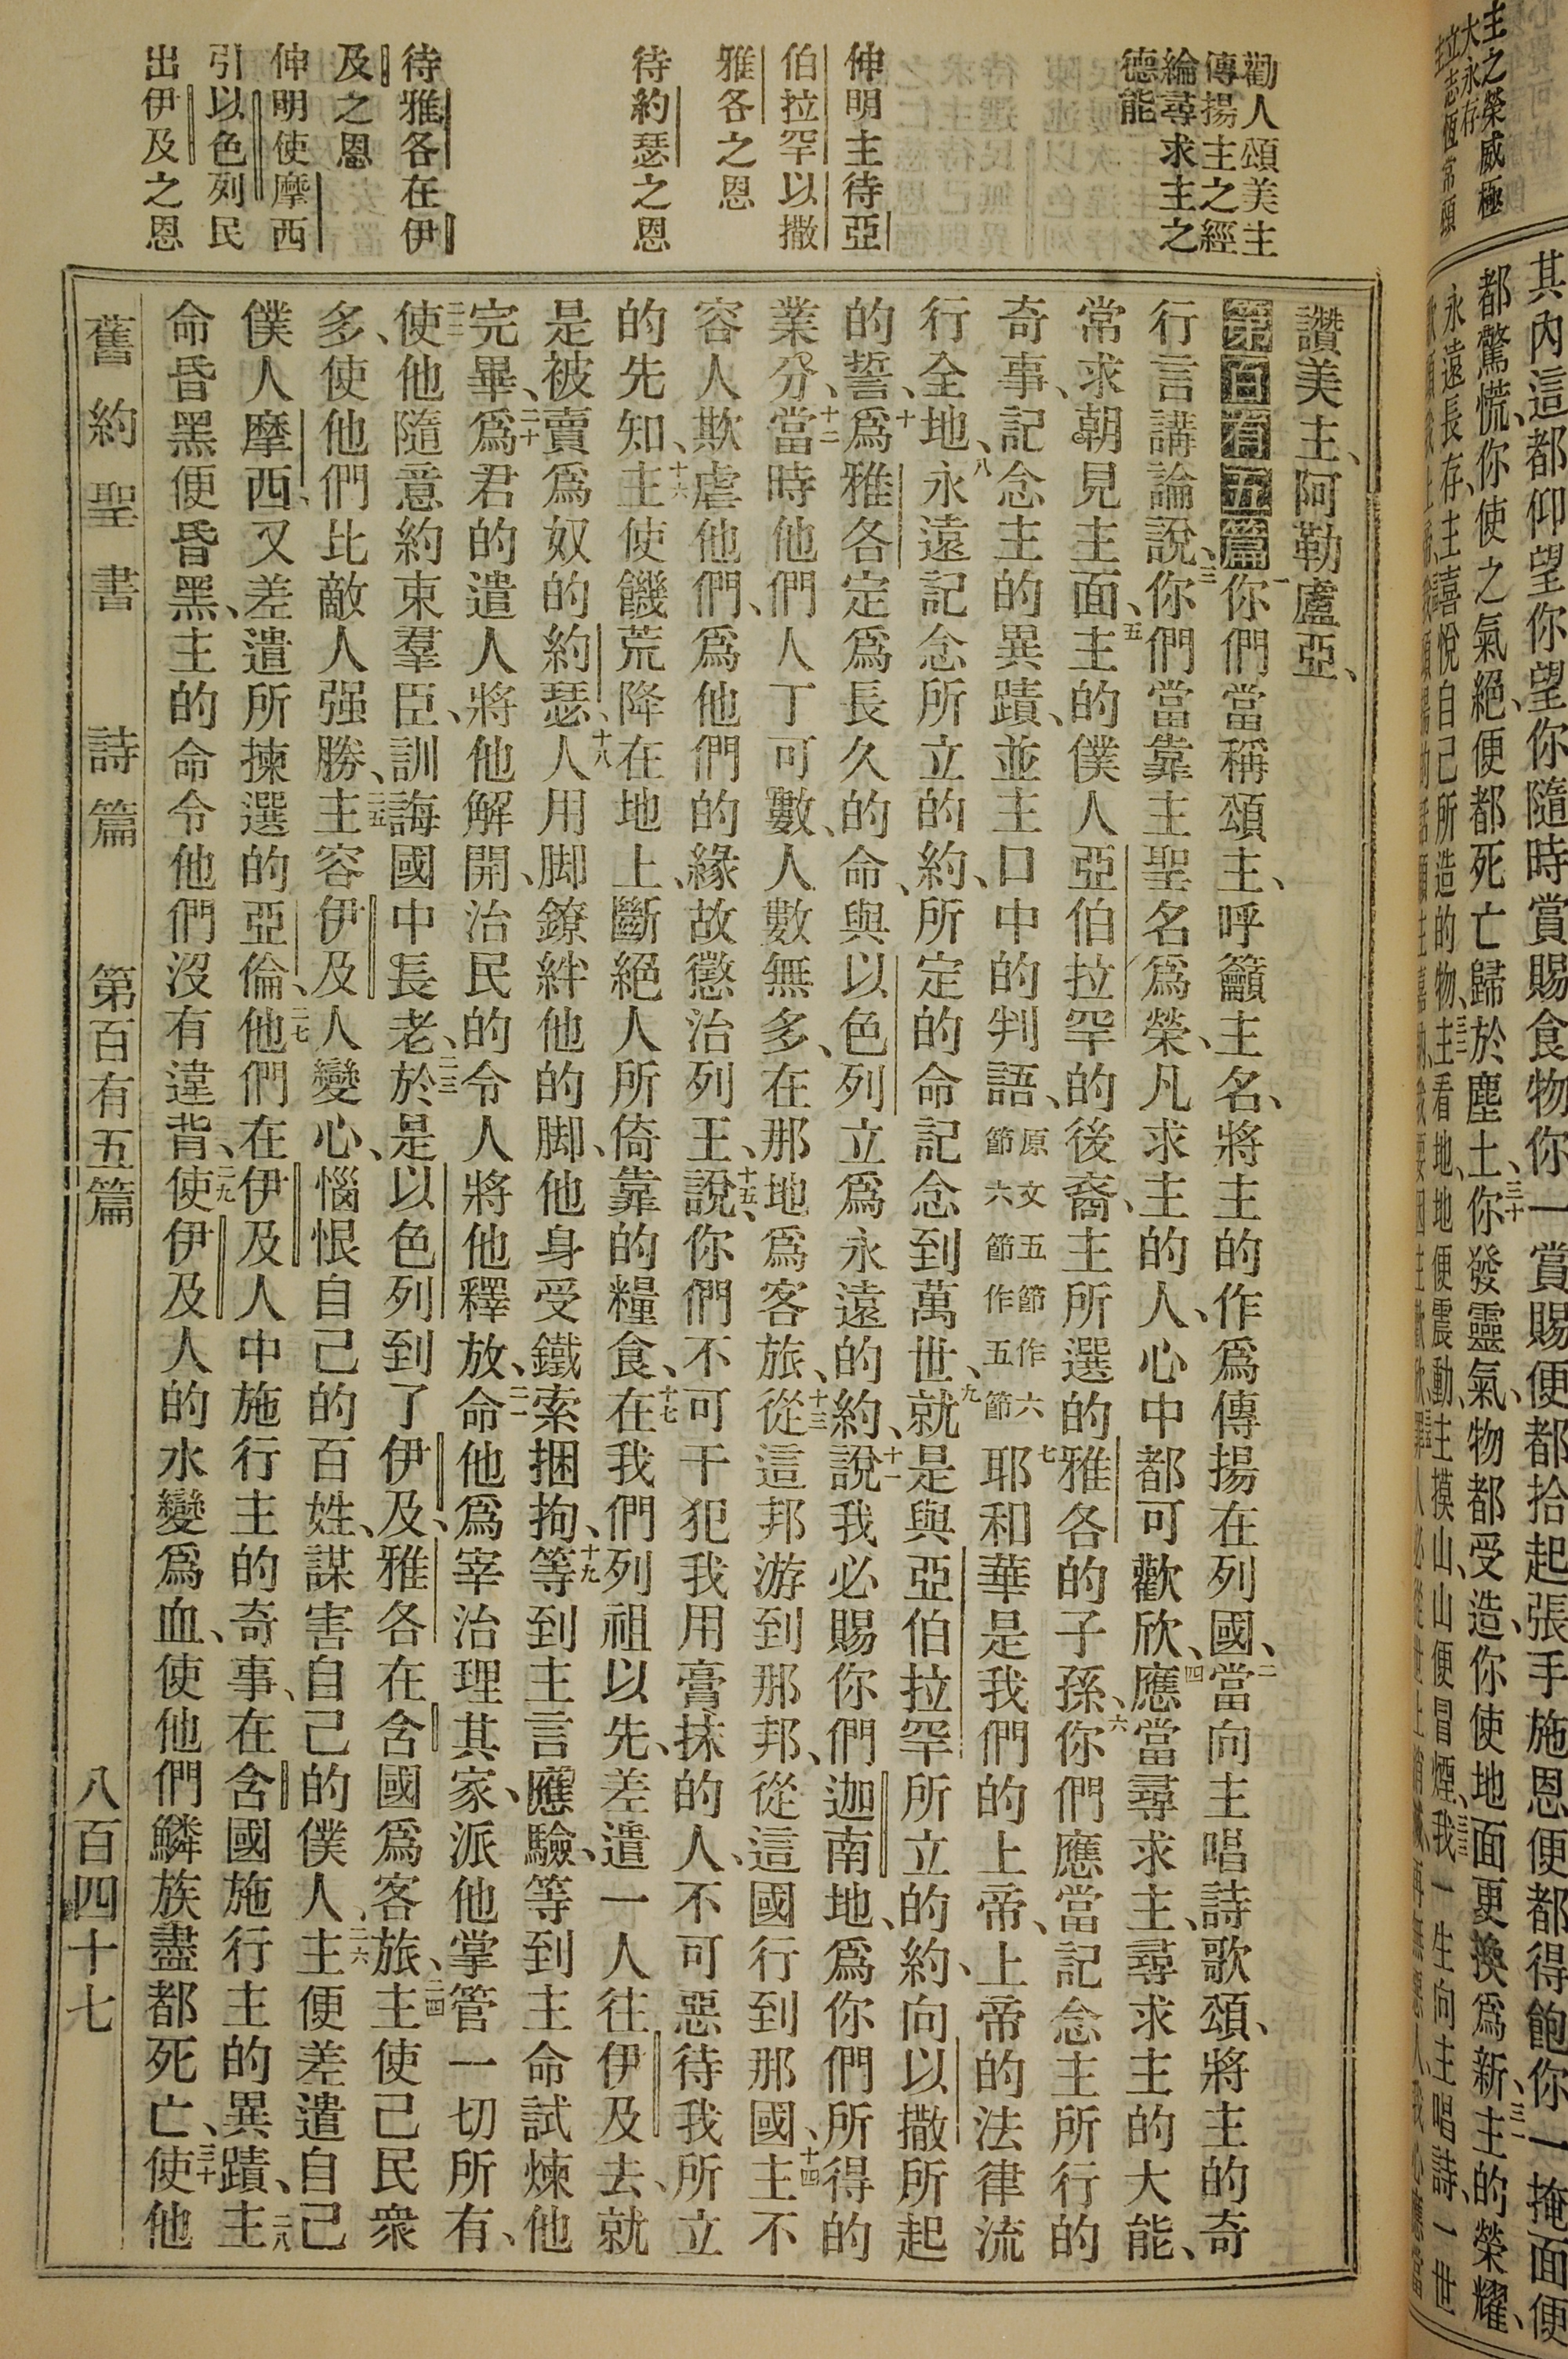 勸人頌美主
傳揚主之經
綸尋求主之
德能
伸明主待亞
伯拉罕以撒
雅各之恩
待約瑟之恩
待雅各在伊
及之恩
伸明使摩西
引以色列民
出伊及之恩
讚美主、阿勒盧亞、
第百有五篇一你們當稱頌主、呼籲主名、將主的作爲傳揚在列國、二當向主唱詩歌頌、將主的奇
行言講論說、三你們當靠主聖名爲榮、凡求主的人、心中都可歡欣、四應當尋求主、尋求主的大能、
常求朝見主面、五主的僕人亞伯拉罕的後裔、主所選的雅各的子孫、六你們應當記念主所行的
奇事、記念主的異蹟、並主口中的判語、原文五節作六節六節作五節七耶和華是我們的上帝、上帝的法律流
行全地、八永遠記念所立的約、所定的命記念到萬世、九就是與亞伯拉罕所立的約、向以撒所起
的誓、十爲雅各定爲長久的命、與以色列立爲永遠的約、十一說我必賜你們迦南地、爲你們所得的
業分、十二當時他們人丁可數、人數無多、在那地爲客旅、十三從這邦游到那邦、從這國行到那國、十四主不
容人欺虐他們、爲他們的緣故懲治列王、十五說、你們不可干犯我用膏抹的人、不可惡待我所立
的先知、十六主使饑荒降在地上、斷絕人所倚靠的糧食、十七在我們列祖以先、差遣一人往伊及去、就
是被賣爲奴的約瑟、十八人用脚鐐絆他的脚、他身受鐵索捆拘、十九等到主言應驗、等到主命試煉他
完畢、二十爲君的遣人將他解開、治民的令人將他釋放、二一命他爲宰治理其家、派他掌管一切所有、
二二使他隨意約束羣臣、訓誨國中長老、二三於是以色列到了伊及、雅各在含國爲客旅、二四主使己民衆
多、使他們比敵人强勝、二五主容伊及人變心、惱恨自己的百姓、謀害自己的僕人、二六主便差遣自己
僕人摩西、又差遣所揀選的亞倫、二七他們在伊及人中施行主的奇事、在含國施行主的異蹟、二八主
命昏黑便昏黑、主的命令他們沒有違背、二九使伊及人的水變爲血、使他們鱗族盡都死亡、三十使他
舊約聖書 詩篇 第百有五篇 八百四十七
主之榮威極
大永存
立志恆常頌
主
其內這都仰望你望你隨時賞賜食物你一賞賜便都拾起張手施恩便都得飽你一掩面便
都驚慌、你使之氣絕、便都死亡歸於塵土、三十你發靈氣、物都受造、你使地面更換爲新、三一主的榮耀、
永遠長存、主喜悅自己所造的物、三二主看地、地便震動、主摸山、山便冒煙、三三我一生向主唱詩、一世